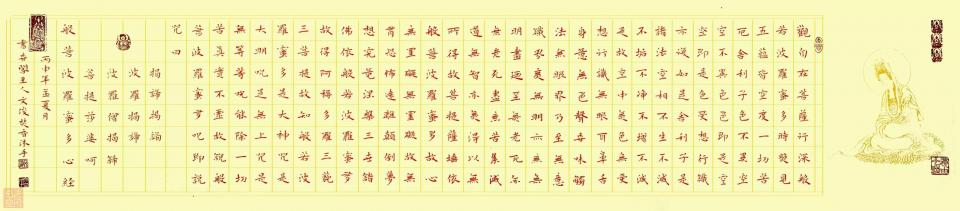 觀自在菩薩行深般
若波羅蜜多時照見
五蘊皆空度一切苦
厄舍利子色不異空
空不異色色即是空
空即是色受想行識
亦復如是舍利子是
諸法空相不生不滅
不垢不淨不增不減
是故空中無色無受
想行識無眼耳鼻舌
身意無色聲香味觸
法無眼界乃至無意
識界無無明亦無無
明盡乃至無老死亦
無老死盡無苦集滅
道無智亦無得以無
所得故菩提薩埵依
般若波羅蜜多故心
無罣礙無罣礙故無
有恐怖遠離顛倒夢
想究竟涅槃三世諸
佛依般若波羅蜜多
故得阿耨多羅三藐
三菩提故知般若波
羅蜜多是大神咒是
大明咒是無上咒是
無等等咒能除一切
苦真實不虛故說般
若波羅蜜多咒即說
咒曰
揭諦揭諦
波羅揭諦
波羅僧揭諦
菩提莎婆呵
般若波羅蜜多心經
丙申年孟夏月